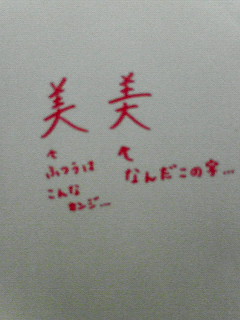 美 美
↑
ふつうは
こんな
カンジ…
↑
なんだこの字…